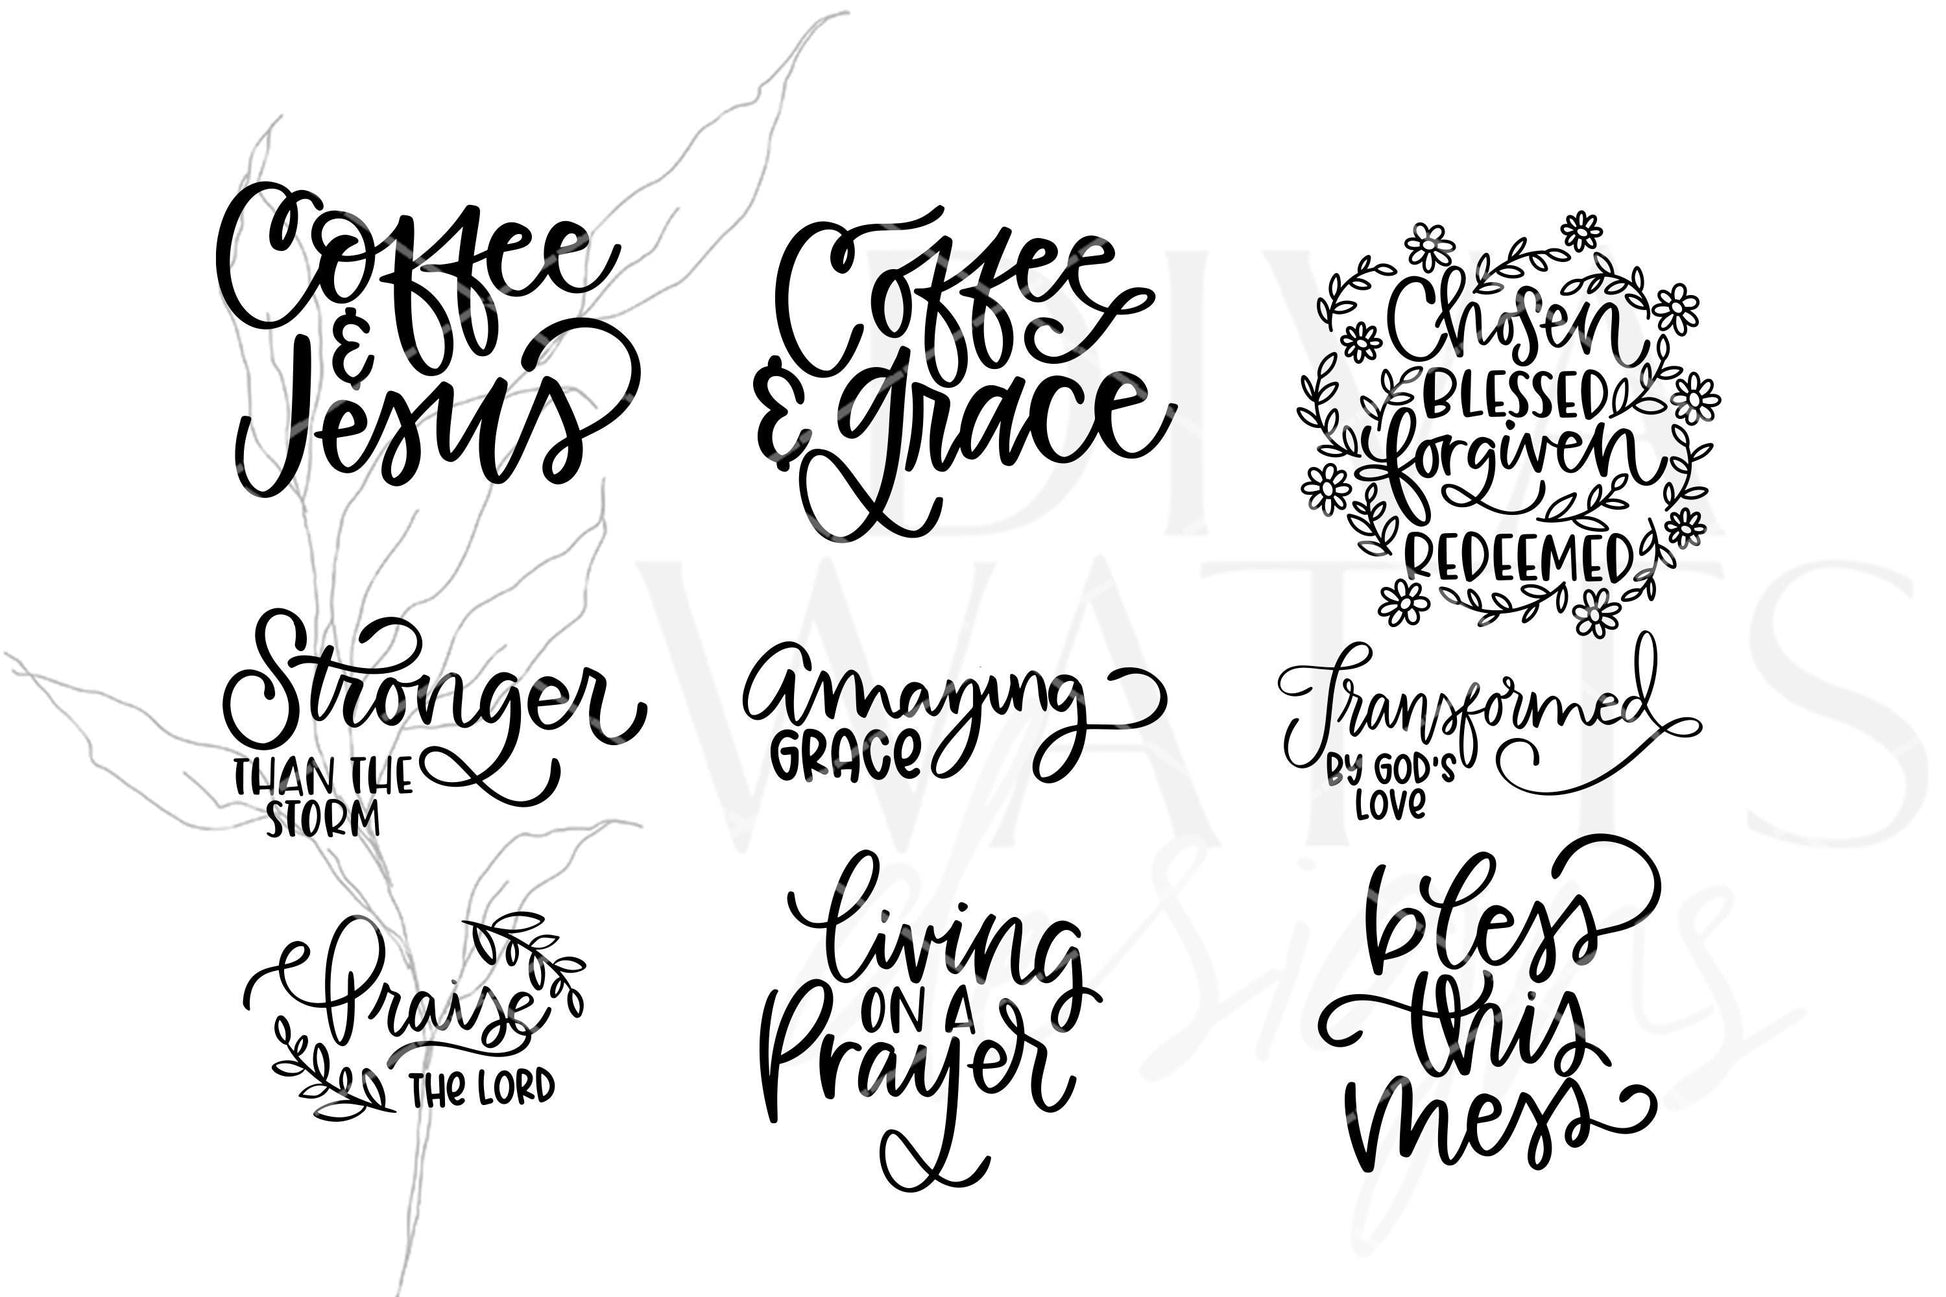 Coffee
&
Jesus
Coffee
& grace
Chosen
BLESSED
forgiven
REDEEMED
Stronger
THAN THE
STORM
amazing
GRACE
Transformed
BY GOD'S
LOVE
Praise
THE LORD
living
ON A
Prayer
bless
this
mess
DIVA
WATTS
designs